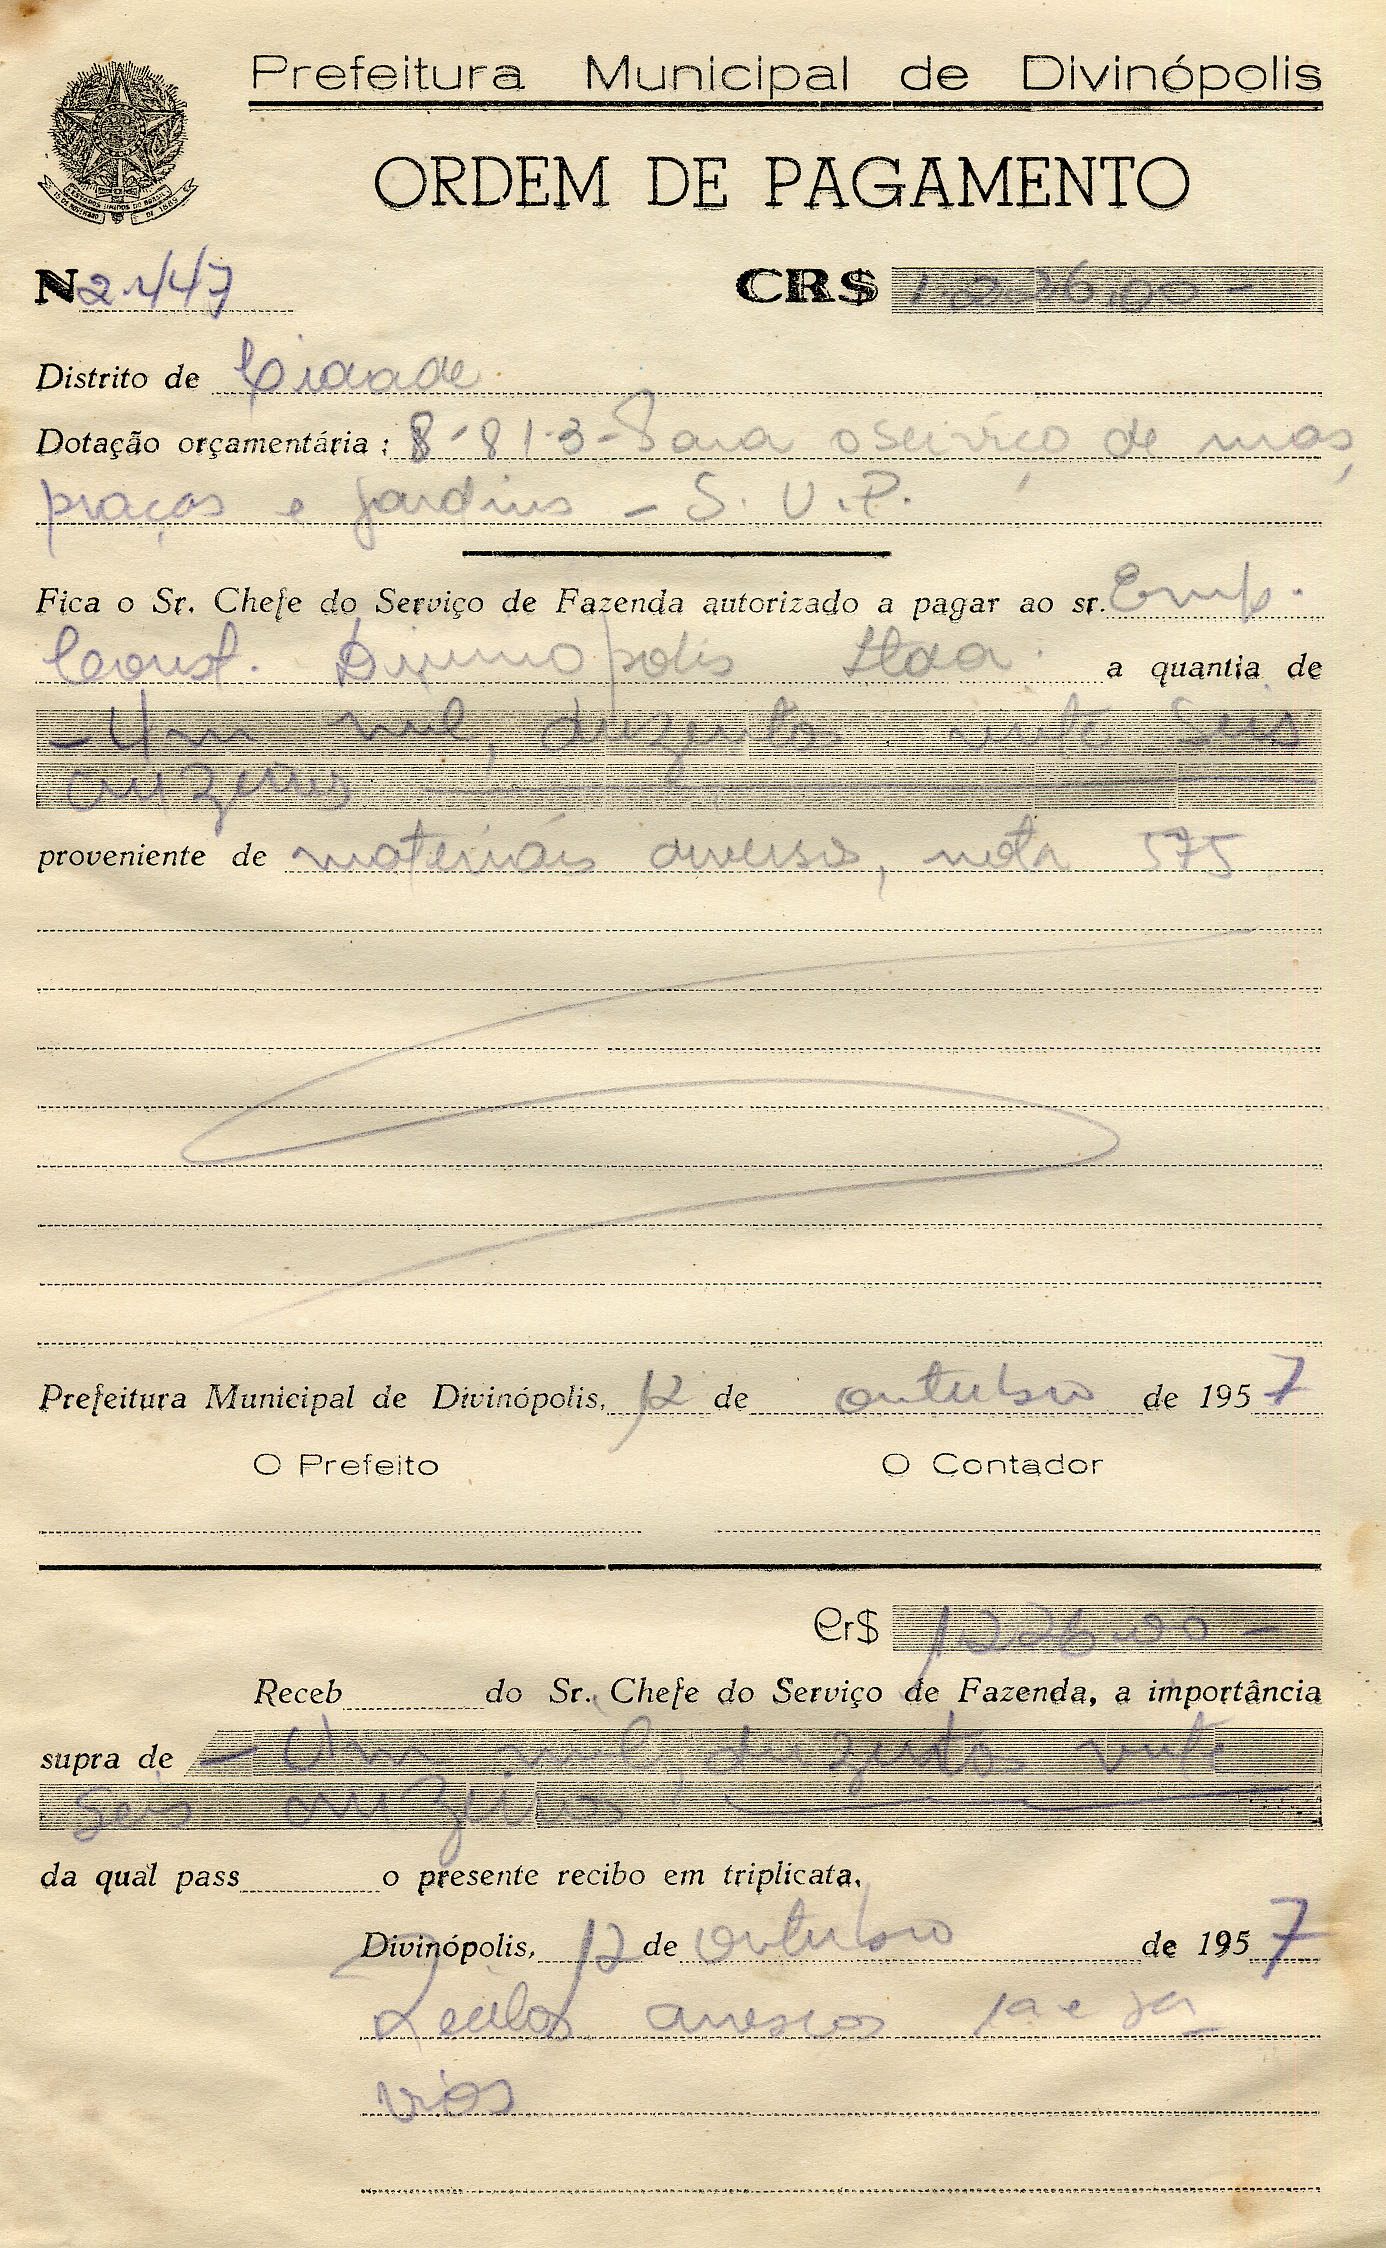 Prefeitura Municipal de Divinópolis
ORDEM DE PAGAMENTO
ESTADOS UNIDOS DO BRASIL
15 DE NOVEMBRO DE 1889
N 2.447 CR$ 1.226,00 -
Distrito de Cidade
Dotação orçamentária: 8-81-3- Para o serviço de ruas,
praças e jardins - S. U. P.
Fica o Sr. Chefe do Serviço de Fazenda autorizado a pagar ao sr. Emp.
Const. Divinópolis Ltda. a quantia de
- Um mil, duzentos vinte seis
cruzeiros
proveniente de materiais diversos, nota 575
Prefeitura Municipal de Divinópolis, 12 de outubro de 1957
O Prefeito O Contador
Cr$ 1.226,00 -
Receb do Sr. Chefe do Serviço de Fazenda, a importância
supra de - Um mil, duzentos vinte
seis cruzeiros
da qual pass o presente recibo em triplicata.
Divinópolis, 12 de outubro de 1957
anexos 1a e
vias